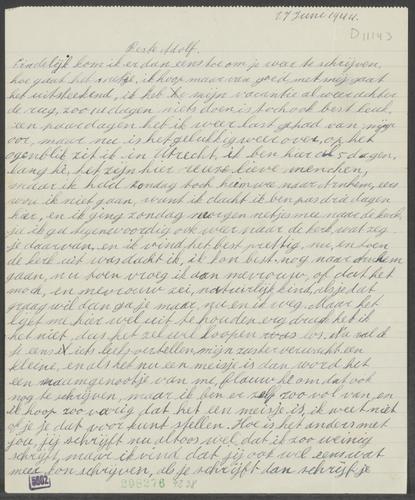 17 Juni 1944.
D 11143
Beste Adolf.
Eindelijk kom ik er dan eens toe om je weer te schrijven,
hoe gaat het ermee, ik hoop maar van goed met mij gaat
het uitstekend, ik heb mijn vacantie al weer achter
de rug, zoo 14 dagen niets doen is toch ook best leuk,
een paar dagen heb ik weer last gehad van mijn
oor, maar nu is het gelukkig weer over, op het
ogenblik zit ik in Utrecht, ik ben hier 5 dagen,
lang hè, het zijn hier reuze lieve menschen,
maar ik had zondag toch heimwee naar Arnhem, eers
wou ik niet gaan, want ik dacht ik ben pas drie dagen
hier, en ik ging zondag morgen netjes mee naar de kerk,
ja ik ga tegenwoordig ook weer naar de kerk, wat zeg
je daarvan, en ik vind het best prettig, nu, en toen
de kerk uit was dacht ik, ik kon best nog naar Arnhem
gaan, nu toen vroeg ik aan mevrouw, of dat het
moch, en mevrouw zei, natuurlijk kind, als je dat
graag wil dan ga je maar, nu en ik weg. Maar het
lijkt me hier wel uit te houden erg druk heb ik
het niet, dus het zel wel loopen zoas ie. Nu zal ik
je eens iets leefs vertellen mijn zuster verwacht een
kleine, en als het nu een meisje is dan word het
een naamgenootje van me, flauw hè om dat ook
nog te schrijven, maar ik ben er zelf zoo vol van, en
ik hoop zoo vurig dat het een meisje is, ik weet niet
of je je dat voor kunt stellen. Hoe is het anders met
jou, jij schrijft nu altoos wel dat ik zoo weinig
schrijf, maar ik vind dat jij ook wel eens wat
meer kon schrijven, als je schrijft dan schrijf je
5002
298276